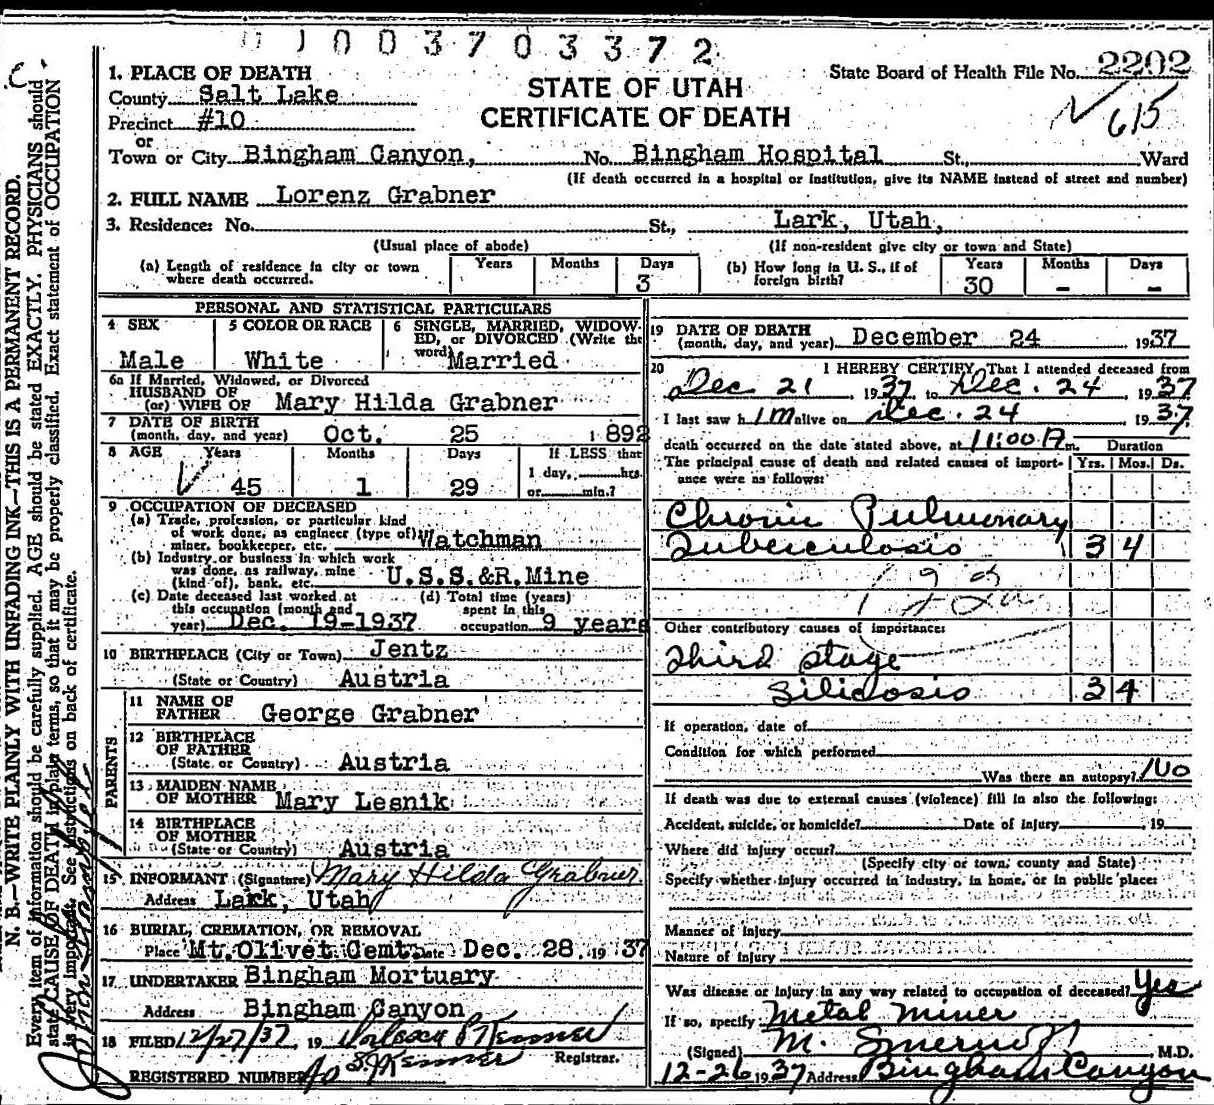 01003703372
State Board of Health File No. 2202
615
STATE OF UTAH
CERTIFICATE OF DEATH
1. PLACE OF DEATH
County Salt Lake
Precinct #10
or
Town or City Bingham Canyon, No. Bingham Hospital St., Ward
(If death occurred in a hospital or institution, give its NAME instead of street and number)
2. FULL NAME Lorenz Grabner
3. Residence: No. St., Lark, Utah,
(Usual place of abode) (If non-resident give city or town and State)
(a) Length of residence in city or town where death occurred. Years Months Days 3
(b) How long in U. S., if of foreign birth? Years 30 Months - Days -
PERSONAL AND STATISTICAL PARTICULARS
4 SEX Male
5 COLOR OR RACE White
6 SINGLE, MARRIED, WIDOWED, or DIVORCED (Write the word) Married
6a If Married, Widowed, or Divorced
HUSBAND OF
(or) WIFE OF Mary Hilda Grabner
7 DATE OF BIRTH
(month, day, and year) Oct. 25 1892
8 AGE Years 45 Months 1 Days 29
If LESS than
1 day, hrs.
or min.?
9 OCCUPATION OF DECEASED
(a) Trade, profession, or particular kind
of work done, as engineer (type of)
miner, bookkeeper, etc. Watchman
(b) Industry or business in which work
was done, as railway, mine
(kind of), bank, etc. U.S.S.&R.Mine
(c) Date deceased last worked at
this occupation (month and
year) Dec. 19-1937
(d) Total time (years)
spent in this
occupation 9 years
10 BIRTHPLACE (City or Town) Jentz
(State or Country) Austria
PARENTS
11 NAME OF
FATHER George Grabner
12 BIRTHPLACE
OF FATHER
(State or Country) Austria
13 MAIDEN NAME
OF MOTHER Mary Lesnik
14 BIRTHPLACE
OF MOTHER
(State or Country) Austria
15 INFORMANT (Signature) Mary Hilda Grabner
Address Lark, Utah
16 BURIAL, CREMATION, OR REMOVAL
Place Mt. Olivet Cemt. Date Dec. 28, 1937
17 UNDERTAKER Bingham Mortuary
Address Bingham Canyon
18 FILED 12/27/37, 19
Registrar.
REGISTERED NUMBER
19 DATE OF DEATH
(month, day, and year) December 24 1937
20 I HEREBY CERTIFY, That I attended deceased from
Dec 21, 1937, to Dec. 24, 1937
I last saw him alive on Dec. 24, 1937,
death occurred on the date stated above, at 11:00 A m. Duration
The principal cause of death and related causes of importance were as follows: Yrs. Mos. Ds.
Chronic Pulmonary
Tuberculosis 3 4
Other contributory causes of importance:
Third stage
Silicosis 3 4
If operation, date of
Condition for which performed
Was there an autopsy? No
If death was due to external causes (violence) fill in also the following:
Accident, suicide, or homicide? Date of injury , 19
Where did injury occur?
(Specify city or town, county and State)
Specify whether injury occurred in industry, in home, or in public place:
Manner of injury
Nature of injury
Was disease or injury in any way related to occupation of deceased? Yes
If so, specify Metal Miner
(Signed) M. M.D.
12-26 1937 Address Bingham Canyon
N. B.—WRITE PLAINLY WITH UNFADING INK—THIS IS A PERMANENT RECORD.
Every item of information should be carefully supplied. AGE should be stated EXACTLY. PHYSICIANS should
state CAUSE OF DEATH in plain terms, so that it may be properly classified. Exact statement of OCCUPATION
is very important. See instructions on back of certificate.